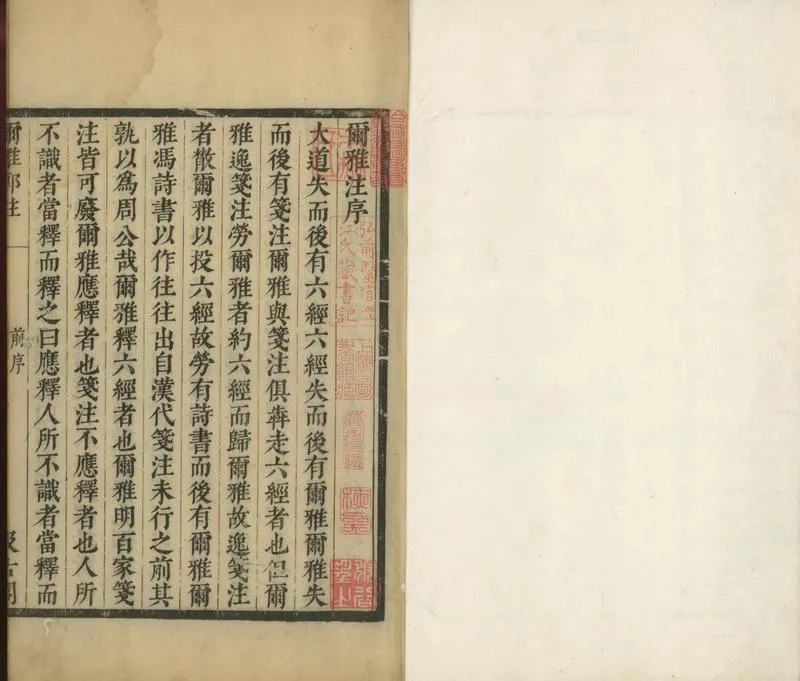 爾雅注序
大道失而後有六經六經失而後有爾雅爾雅失
而後有箋注爾雅與箋注俱犇走六經者也但爾
雅逸箋注勞爾雅者約六經而歸爾雅故逸箋注
者散爾雅以投六經故勞有詩書而後有爾雅爾
雅馮詩書以作往往出自漢代箋注未行之前其
孰以爲周公哉爾雅釋六經者也爾雅明百家箋
注皆可廢爾雅應釋者也箋注不應釋者也人所
不識者當釋而釋之曰應釋人所不識者當釋而
爾雅鄭注
前序
汲古閣